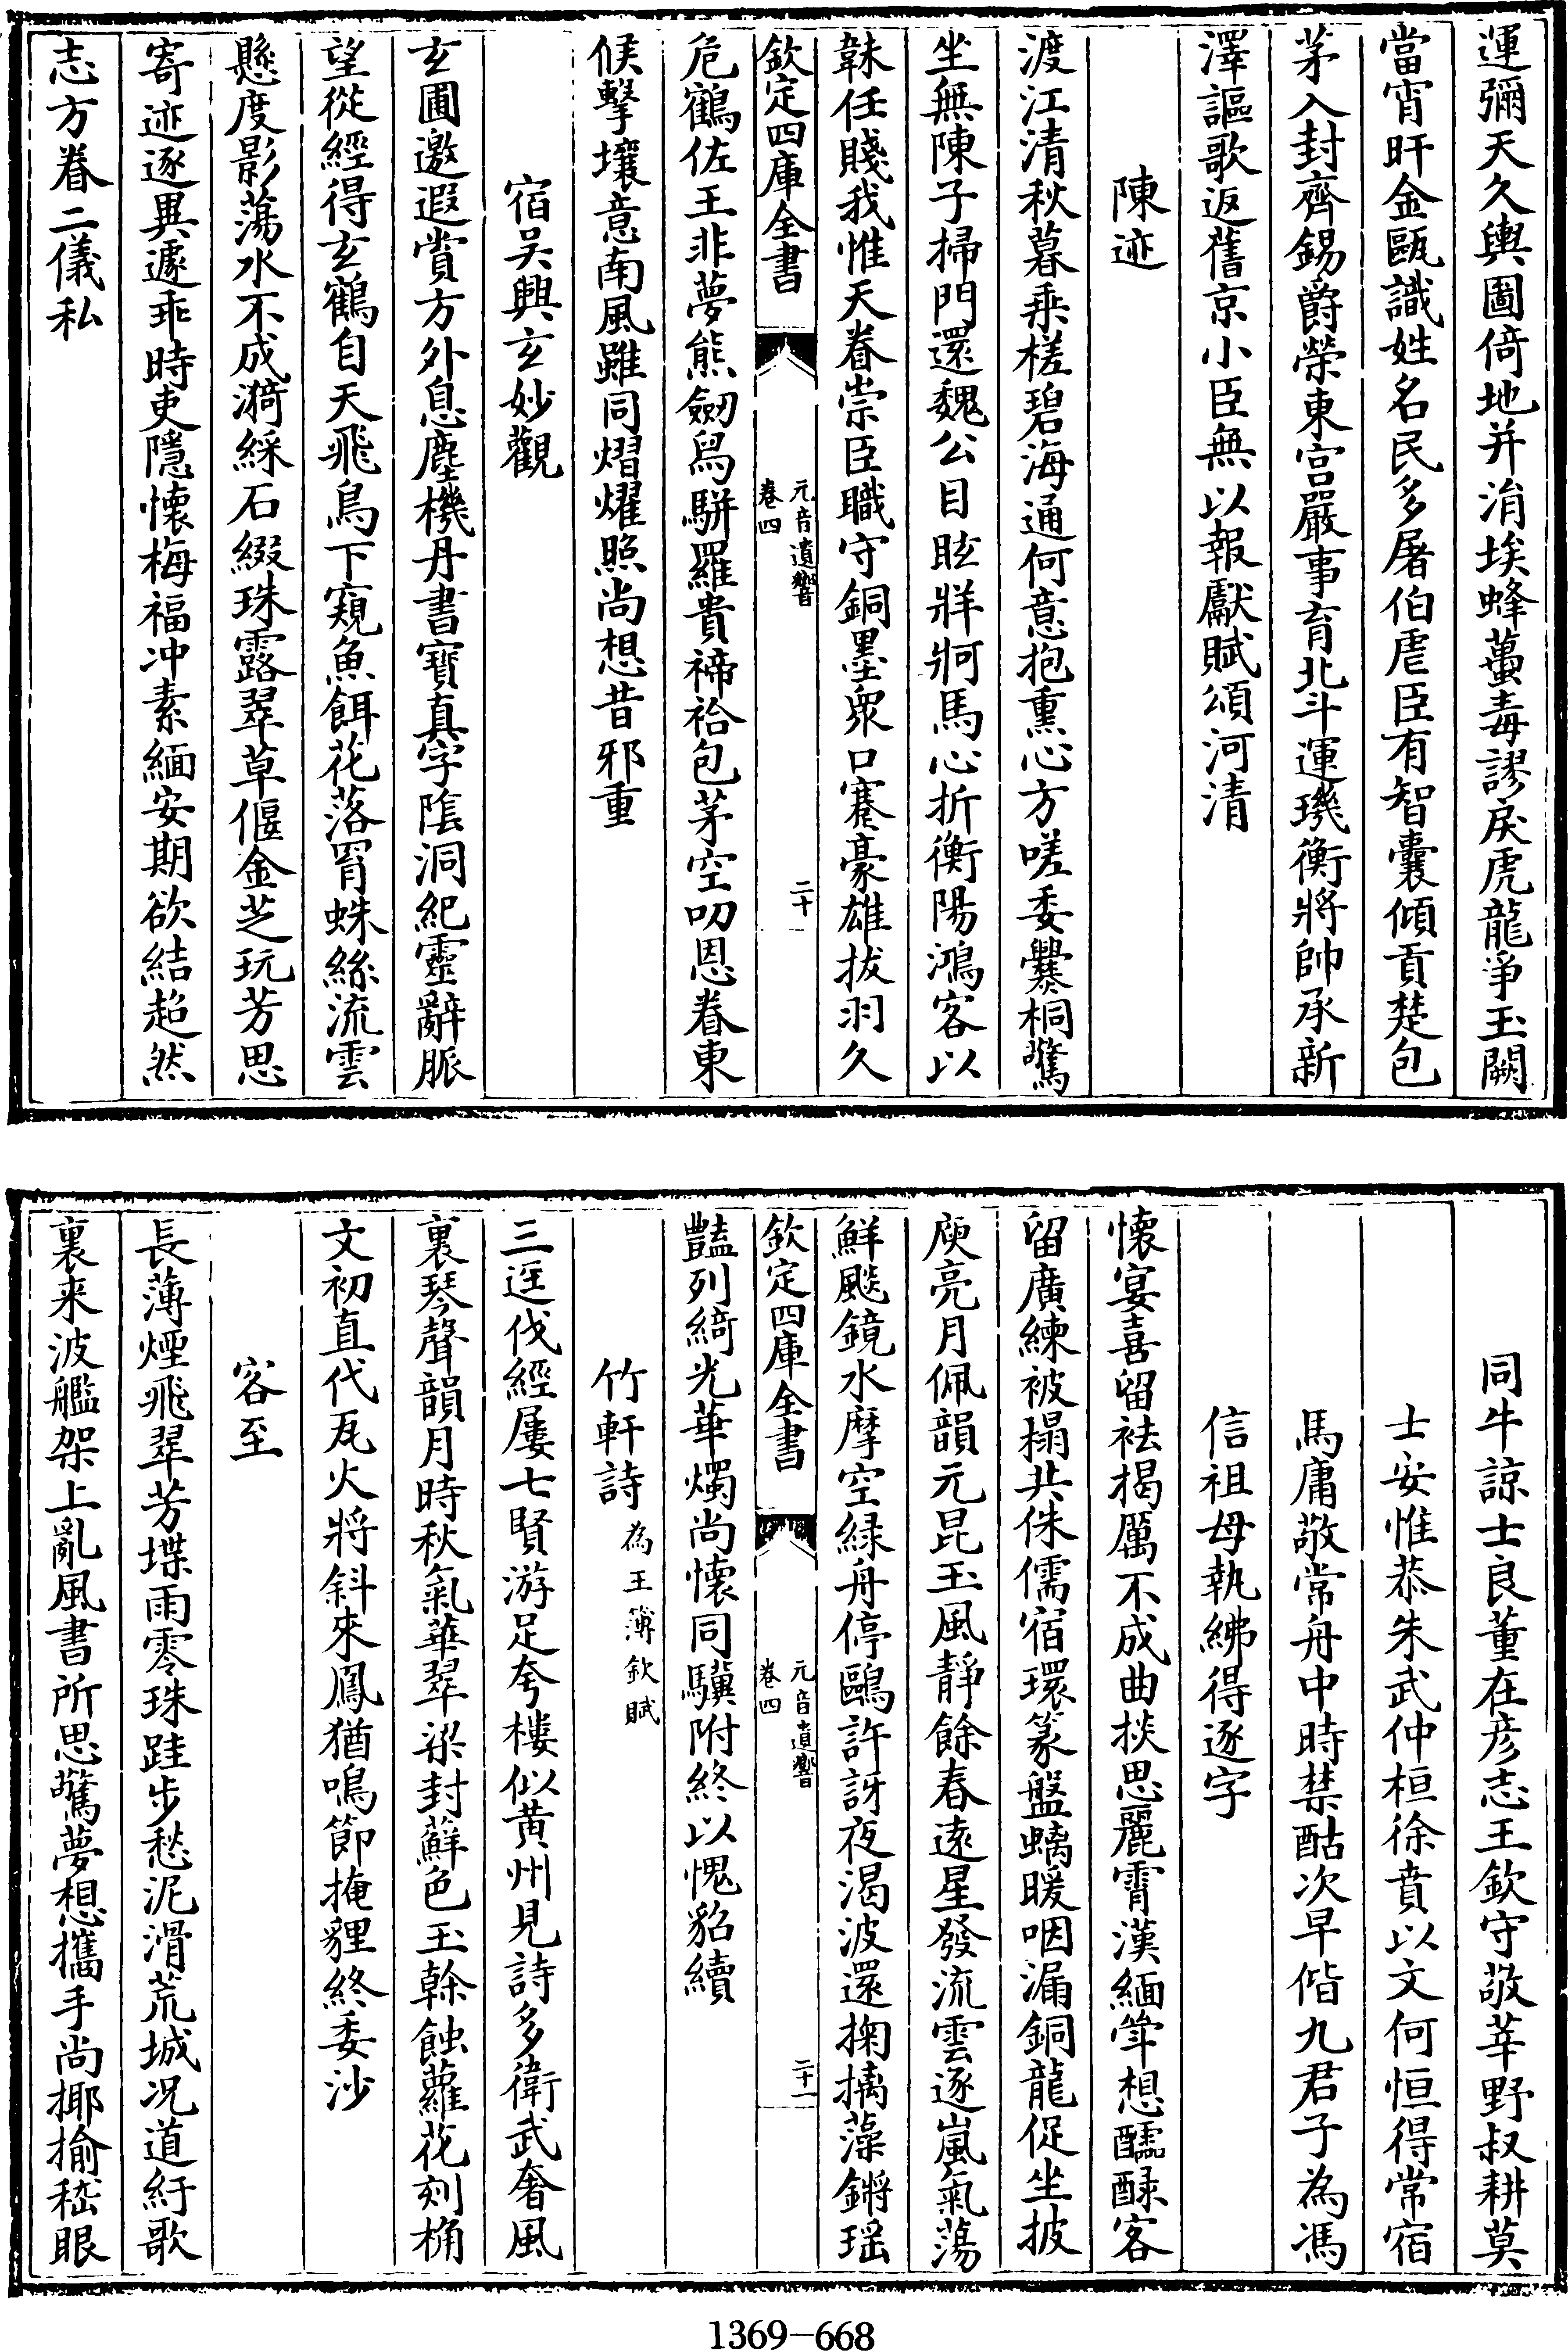 運彌天久輿圖倚地并涓埃蜂蠆毒謬戾虎龍爭玉闕
當宵旰金甌識姓名民多屠伯虐臣有智囊傾貢楚包
茅入封齊錫爵榮東宫嚴事育北斗運璣衡將帥承新
澤謳歌返舊京小臣無以報獻賦頌河清
陳迹
渡江清秋暮乗槎碧海通何意抱熏心方嗟委爨桐驚
坐無陳子掃門還魏公目眩牂牁馬心折衡陽鴻客以
韎任賤我惟天眷崇臣職守銅墨衆口蹇豪雄拔羽久
欽定四庫全書
元音遺響
卷四
二十
危鶴佐王非夢熊劒舄駢羅貴禘祫包茅空叨恩眷東
候擊壤意南風雖同熠燿照尚想昔邪重
宿吴興玄妙觀
玄圃邀遐賞方外息塵機丹書寳真字陰洞紀靈辭脈
望從經得玄鶴自天飛鳥下窺魚餌花落罥蛛絲流雲
懸度影蕩水不成漪綵石綴珠露翠草偃金芝玩芳思
寄迹逐異遽乖時吏隱懐梅福冲素緬安期欲結超然
志方眷二儀私
同牛諒士良董在彦志王欽守敬莘野叔耕莫
士安惟恭朱武仲桓徐賁以文何恒得常宿
馬庸敬常舟中時禁酤次早偕九君子為馮
信祖母執紼得逐字
懐宴喜留袪揭厲不成曲掞思麗霄漢緬睾想醽醁客
留廣練被榻共侏儒宿環篆盤螭暖咽漏銅龍促坐披
庾亮月佩韻元昆玉風靜餘春逺星發流雲逐嵐氣蕩
鮮飈鏡水摩空緑舟停鷗許訝夜渴波還掬摛藻鏘瑶
欽定四庫全書
元音遺響
卷四
二十一
豔列綺光華燭尚懐同驥附終以愧貂續
竹軒詩為王簿欽賦
三逕伐經屢七賢游足夸樓似黄州見詩多衛武奢風
裏琴聲韻月時秋氣華翠梁封蘚色玉榦蝕蘿花刻桷
文初直代瓦火將斜來鳳猶鳴節掩貍終委沙
客至
長薄煙飛翠芳堞雨零珠跬步愁泥滑荒城况道紆歌
裏来波艦架上亂風書所思驚夢想攜手尚揶揄嵇眼
1369—668